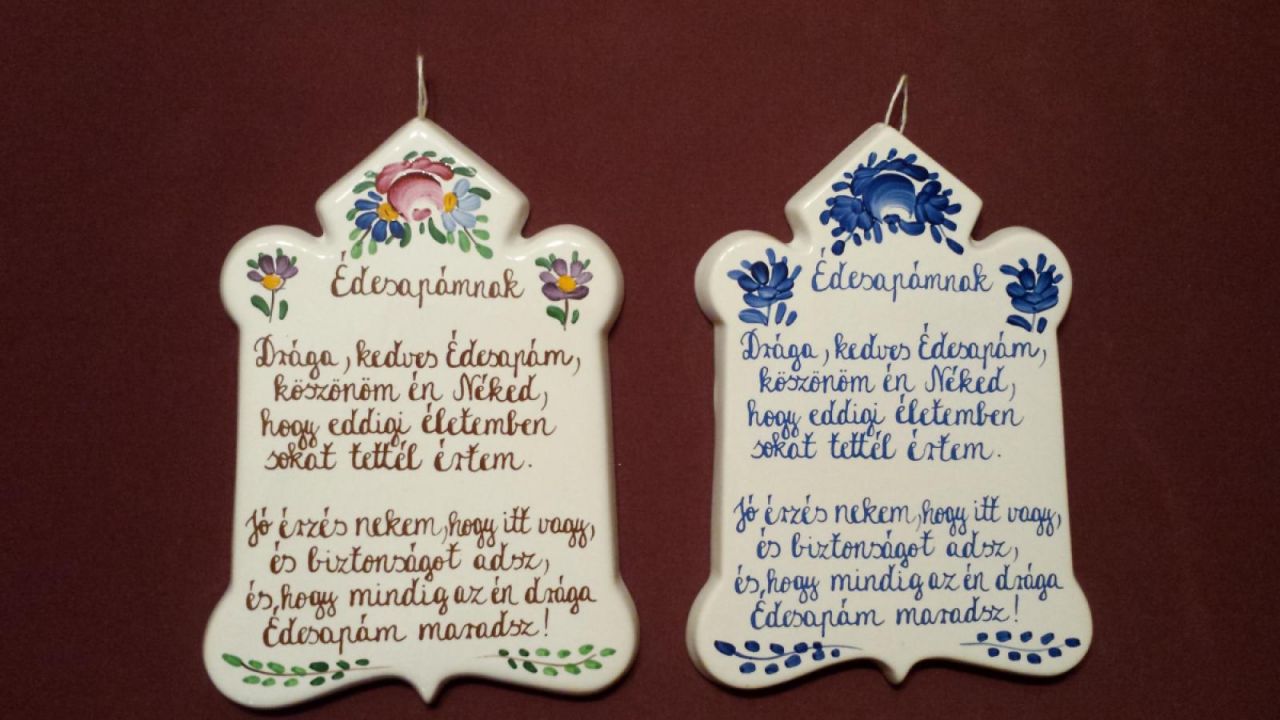 Édesapámnak
Drága, kedves Édesapám,
köszönöm én Néked,
hogy eddigi életemben
sokat tettél értem.
Jó érzés nekem, hogy itt vagy,
és biztonságot adsz,
és, hogy mindig az én drága
Édesapám maradsz!
Édesapámnak
Drága, kedves Édesapám,
köszönöm én Néked,
hogy eddigi életemben
sokat tettél értem.
Jó érzés nekem, hogy itt vagy,
és biztonságot adsz,
és, hogy mindig az én drága
Édesapám maradsz!